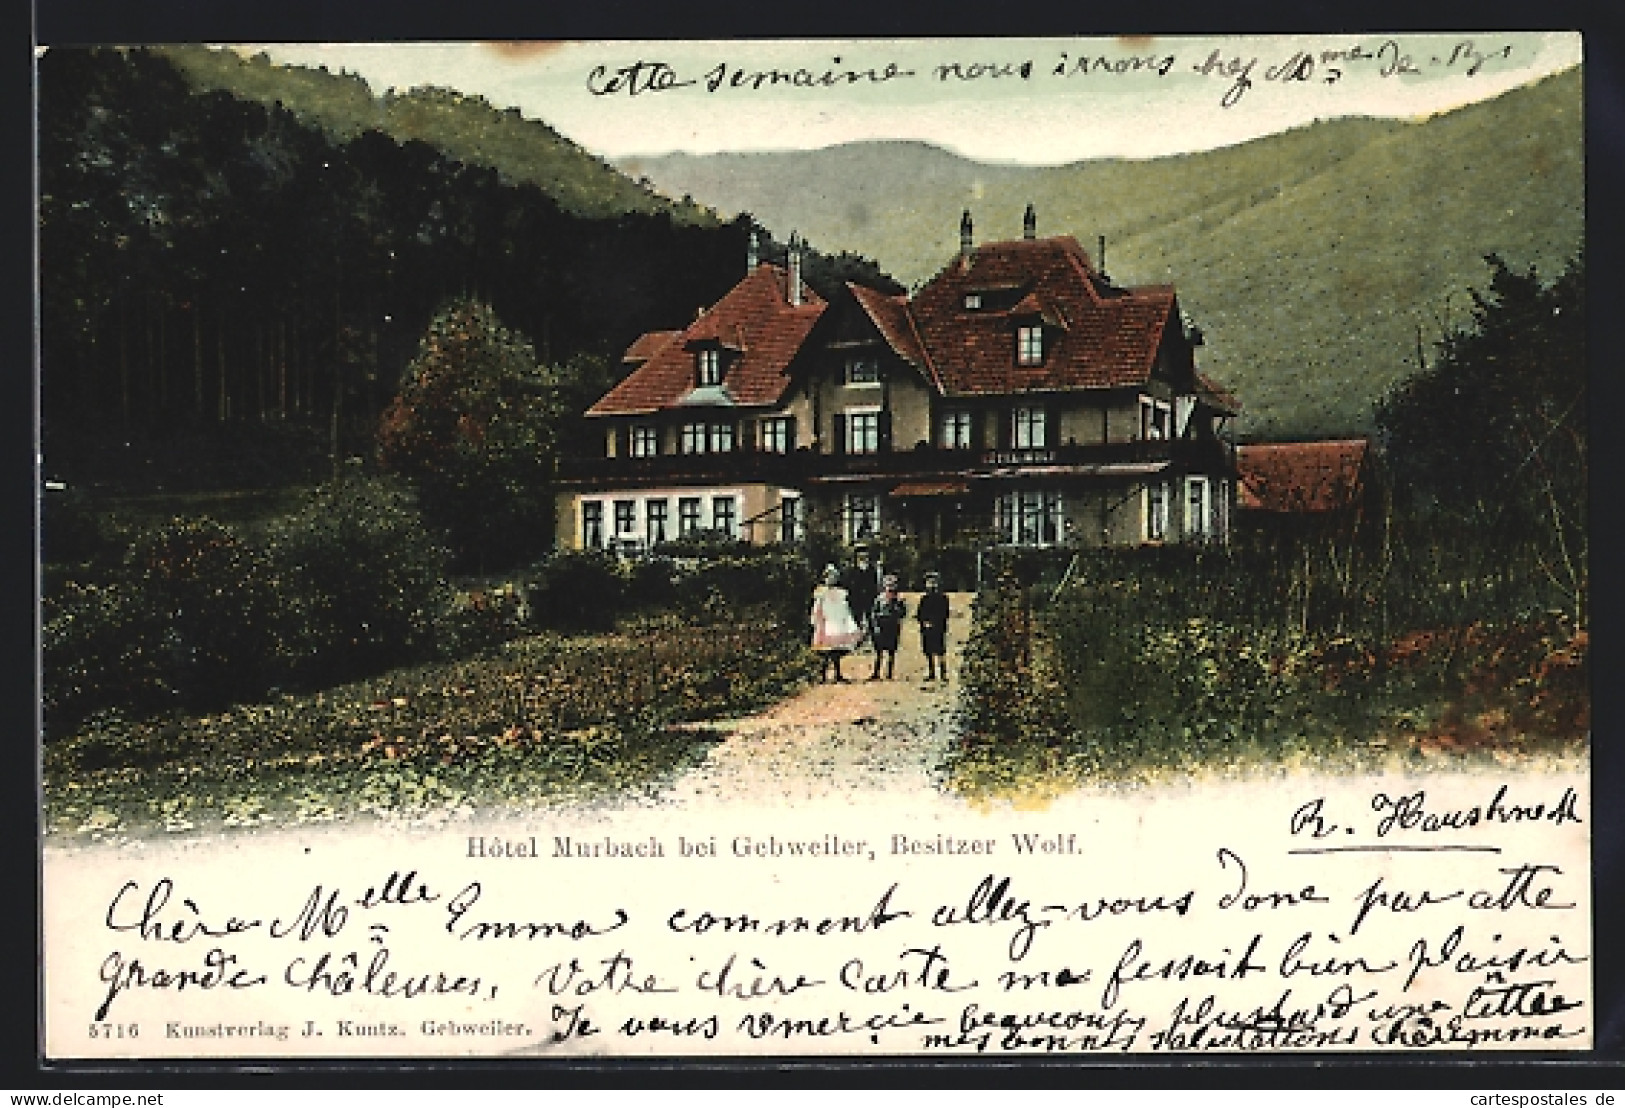 Cette semaine nous irrons chez Mme de B.
Hôtel Murbach bei Gebweiler, Besitzer Wolf.
R. Hausknecht
Chère Melle Emma comment allez-vous donc par cette
grande châleures, Votre chère Carte me fessait bien plaisir
Je vous remercie beaucoup, plustard une lettre
mes bonnes salutations chère Emma
5716 Kunstverlag J. Kuntz. Gebweiler.
delcampe.net
cartespostales de